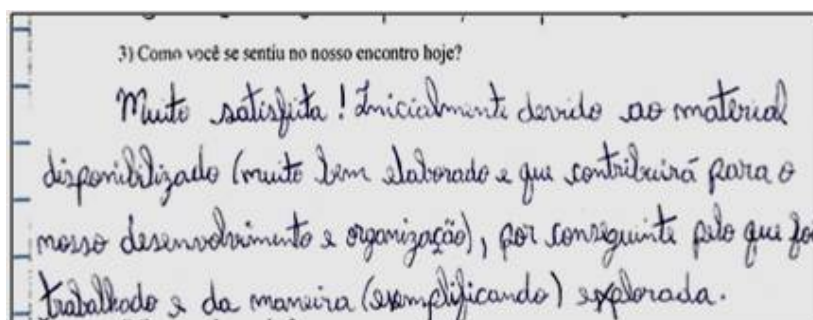 3) Como você se sentiu no nosso encontro hoje?
Muito satisfeita! Inicialmente devido ao material
disponibilizado (muito bem elaborado e que contribuirá para o
nosso desenvolvimento e organização), por conseguinte pelo que foi
trabalhado e da maneira (exemplificando) explorada.